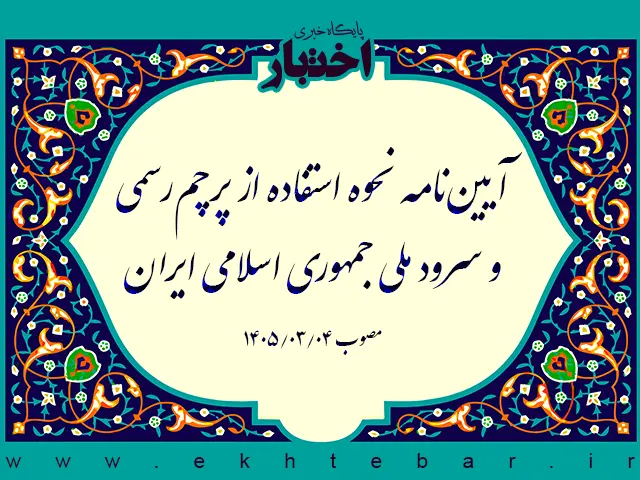 پایگاه خبری
اختبار
آیین‌نامه نحوه استفاده از پرچم رسمی
و سرود ملی جمهوری اسلامی ایران
مصوب ۱۴۰۵/۰۳/۰۴
www.ekhtebar.ir